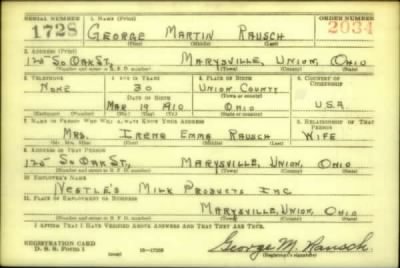 SERIAL NUMBER 1. NAME (Print) ORDER NUMBER
1728 GEORGE MARTIN RAUSCH 2034
(First) (Middle) (Last)
2. ADDRESS (Print)
125 SO OAK ST, MARYSVILLE, UNION, OHIO
(Number and street or R. F. D. number) (Town) (County) (State)
3. TELEPHONE 4. AGE IN YEARS 5. PLACE OF BIRTH 6. COUNTRY OF CITIZENSHIP
NONE 30 UNION COUNTY
DATE OF BIRTH (Town or county)
MAR 19 1910 OHIO U.S.A.
(Mo.) (Day) (Yr.) (State or country)
7. NAME OF PERSON WHO WILL ALWAYS KNOW YOUR ADDRESS 8. RELATIONSHIP OF THAT PERSON
MRS. IRENE EMMA RAUSCH WIFE
(Mr., Mrs., Miss) (First) (Middle) (Last)
9. ADDRESS OF THAT PERSON
125 SO OAK ST., MARYSVILLE, UNION, OHIO
(Number and street or R. F. D. number) (Town) (County) (State)
10. EMPLOYER'S NAME
NESTLE'S MILK PRODUCTS INC
11. PLACE OF EMPLOYMENT OR BUSINESS
MARYSVILLE, UNION, OHIO
(Number and street or R. F. D. number) (Town) (County) (State)
I AFFIRM THAT I HAVE VERIFIED ABOVE ANSWERS AND THAT THEY ARE TRUE.
REGISTRATION CARD
D. S. S. Form 1 George M. Rausch
(Registrant's signature)